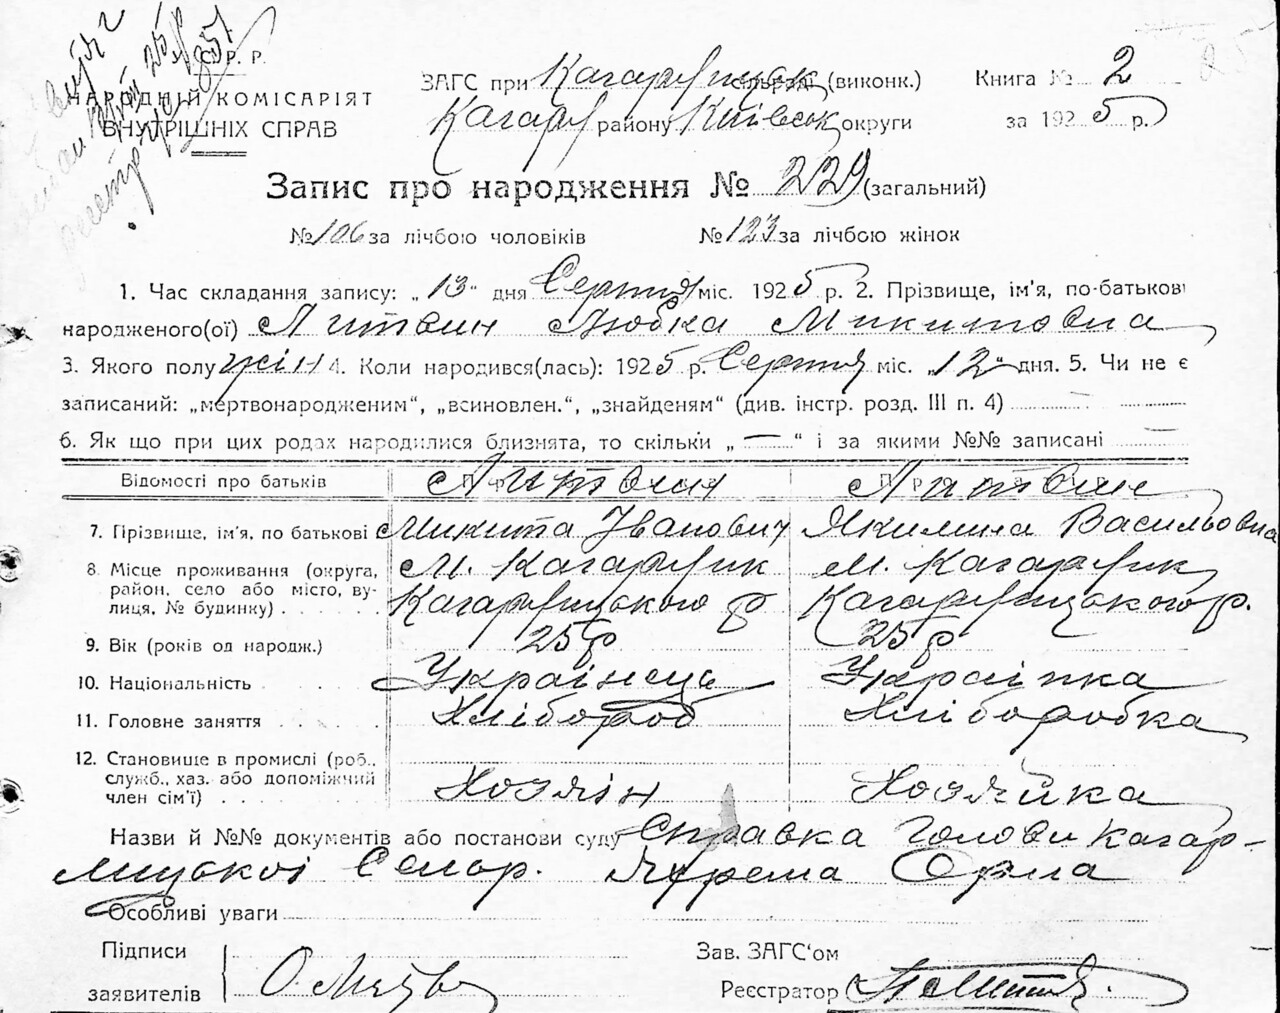 У. С. Р. Р.
НАРОДНІЙ КОМІСАРІЯТ
ВНУТРІШНІХ СПРАВ
ЗАГС при Кагарлицьк сільраді (виконк.) Книга № 2
Кагарл району Київськ округи за 1925 р.
Запис про народження № 229 (загальний)
№ 106 за лічбою чоловіків № 123 за лічбою жінок
1. Час складання запису: „13" дня Серпня міс. 1925 р. 2. Прізвище, ім'я, по-батькові
народженого(ої) Литвин Любка Микитовна
3. Якого полу жін 4. Коли народився(лась): 1925 р. Серпня міс. „12" дня. 5. Чи не є
записаний: „мертвонародженим", „всиновлен.", „знайденям" (див. інстр. розд. III п. 4)
6. Як що при цих родах народилися близнята, то скільки „—" і за якими №№ записані —
Відомості про батьків Литвин Литвин
7. Прізвище, ім'я, по батькові Микита Іванович Якилина Васильовна
8. Місце проживання (округа, район, село або місто, вулиця, № будинку) М. Кагарлик Кагарлицького р М. Кагарлик Кагарлицького р.
9. Вік (років од народж.) 25 р 25 р
10. Національність Українець Українка
11. Головне заняття Хлібороб Хліборобка
12. Становище в промислі (роб., служб., хаз. або допоміжний член сім'ї) Хозяін Хозяйка
Назви й №№ документів або постанови суду Справка Голови Кагар-
лицькоі Сельр. Яфрема Орла
Особливі уваги
Підписи Зав. ЗАГС'ом
заявителів Реєстратор